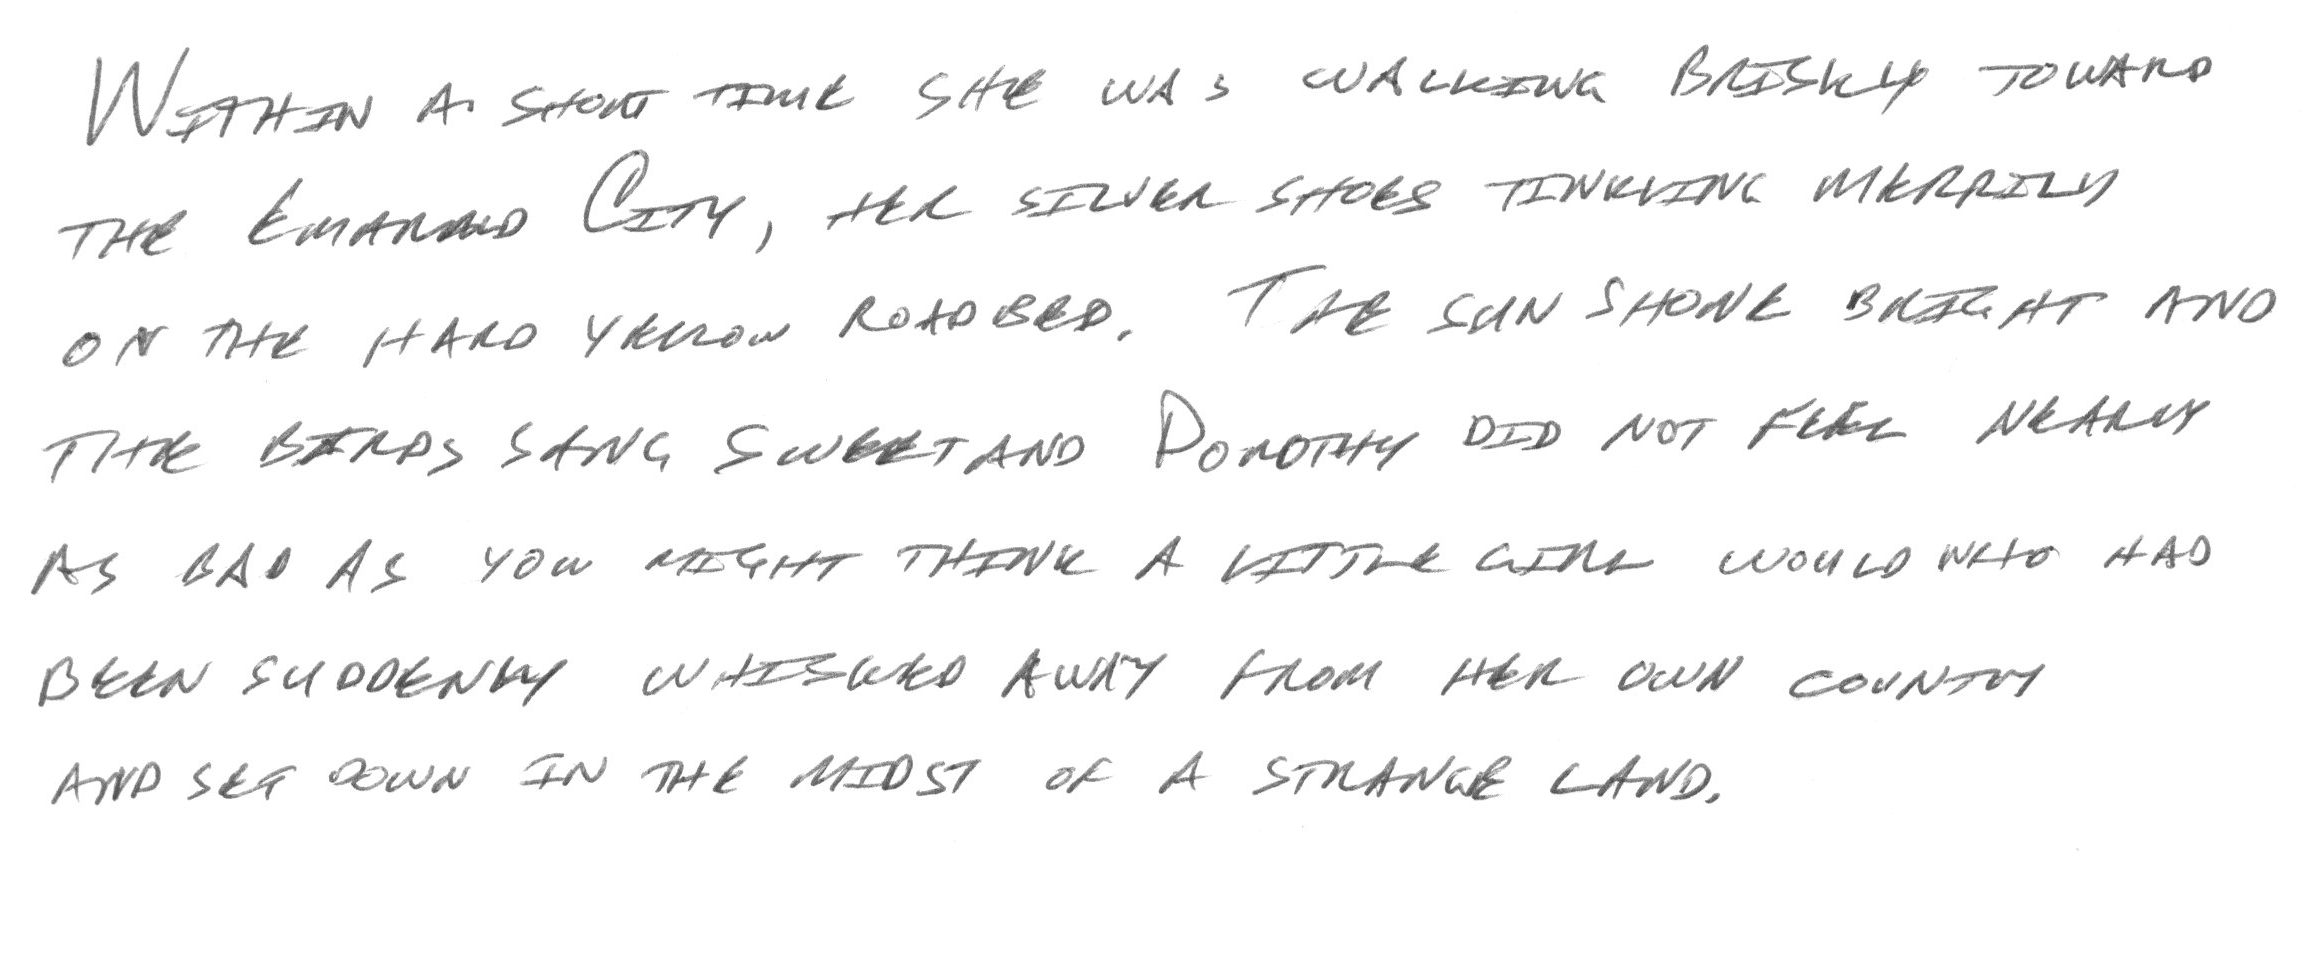 WITHIN A SHORT TIME SHE WAS WALKING BRISKLY TOWARD
THE EMARALD CITY, HER SILVER SHOES TINKLING MERRILY
ON THE HARD YELLOW ROADBED. THE SUN SHONE BRIGHT AND
THE BIRDS SANG SWEET AND DOROTHY DID NOT FEEL NEARLY
AS BAD AS YOU MIGHT THINK A LITTLE GIRL WOULD WHO HAD
BEEN SUDDENLY WHISKED AWAY FROM HER OWN COUNTRY
AND SET DOWN IN THE MIDST OF A STRANGE LAND.